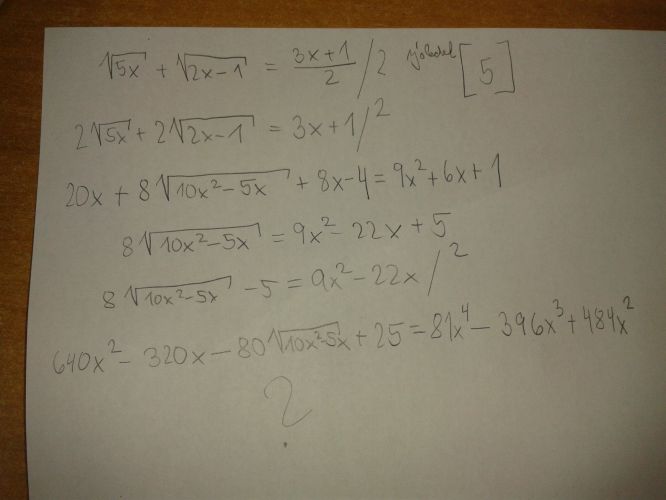 √5x + √2x-1 = 3x+1/2 /2 [5]
2√5x + 2√2x-1 = 3x+1/²
20x + 8√10x²-5x + 8x-4=9x²+6x+1
8√10x²-5x = 9x²-22x+5
8√10x²-5x -5 = 9x²-22x/²
640x²-320x-80√10x²-5x+25=81x⁴-396x³+484x²
?